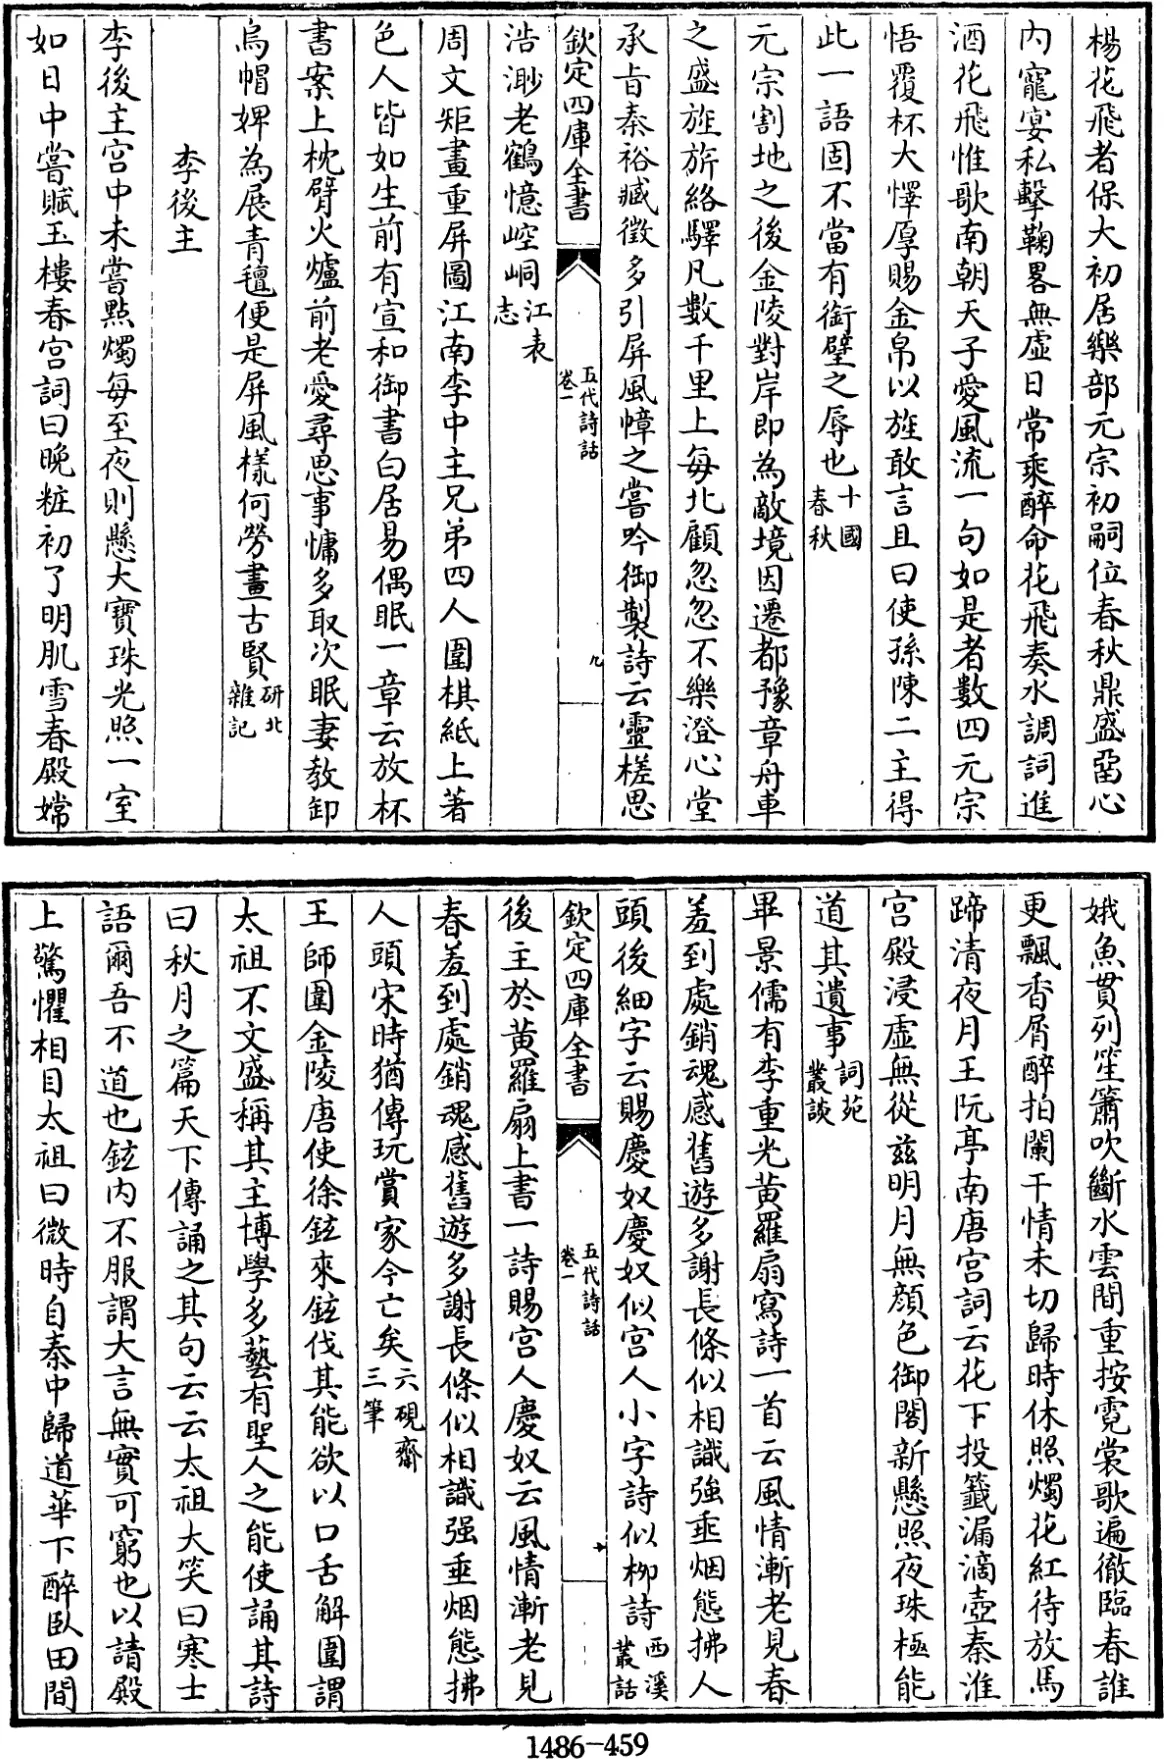 楊花飛者保大初居樂部元宗初嗣位春秋鼎盛畱心
内寵宴私擊鞠畧無虚日常乘醉命花飛奏水調詞進
酒花飛惟歌南朝天子愛風流一句如是者數四元宗
悟覆杯大懌厚賜金帛以旌敢言且曰使孫陳二主得
此一語固不當有銜璧之辱也十國春秋
元宗割地之後金陵對岸即為敵境因遷都豫章舟車
之盛旌旂絡驛凡數千里上每北顧忽忽不樂澄心堂
承旨秦裕臧徵多引屏風幛之嘗吟御製詩云靈槎思
欽定四庫全書
五代詩話
卷一
九
浩渺老鶴憶崆峒江表志
周文矩畫重屏圖江南李中主兄弟四人圍棋紙上著
色人皆如生前有宣和御書白居易偶眠一章云放杯
書案上枕臂火爐前老愛尋思事慵多取次眠妻教卸
烏帽婢為展青氊便是屏風樣何勞畫古賢研北雜記
李後主
李後主宫中未嘗點燭每至夜則懸大寶珠光照一室
如日中嘗賦玉樓春宫詞曰晩粧初了明肌雪春殿嫦
娥魚貫列笙簫吹斷水雲間重按霓裳歌遍徹臨春誰
更飄香屑醉拍闌干情未切歸時休照燭花紅待放馬
蹄清夜月王阮亭南唐宫詞云花下投籤漏滴壺秦淮
宫殿浸虚無從兹明月無顔色御閣新懸照夜珠極能
道其遺事詞苑叢談
畢景儒有李重光黄羅扇寫詩一首云風情漸老見春
羞到處銷魂感舊遊多謝長條似相識強垂烟態拂人
頭後細字云賜慶奴慶奴似宫人小字詩似柳詩西溪叢話
欽定四庫全書
五代詩話
卷一
十
後主於黄羅扇上書一詩賜宫人慶奴云風情漸老見
春羞到處銷魂感舊遊多謝長條似相識强垂烟態拂
人頭宋時猶傳玩賞家今亡矣六硯齋三筆
王師圍金陵唐使徐鉉來鉉伐其能欲以口舌解圍謂
太祖不文盛稱其主博學多藝有聖人之能使誦其詩
曰秋月之篇天下傳誦之其句云云太祖大笑曰寒士
語爾吾不道也鉉内不服謂大言無實可窮也以請殿
上驚懼相目太祖曰微時自秦中歸道華下醉臥田間
1486—459